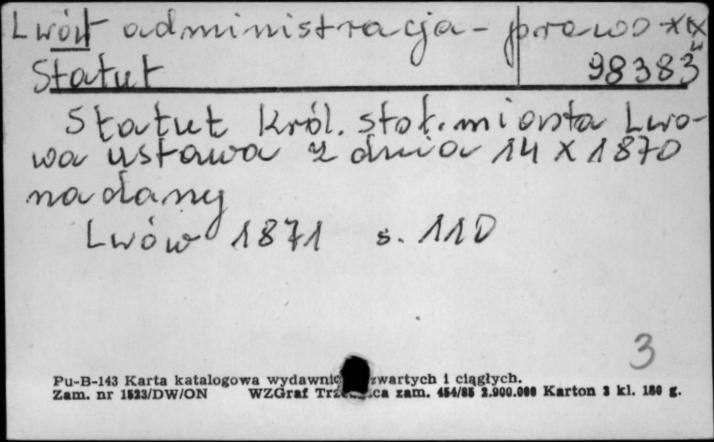 Lwów administracja - prawo XIX w
Statut 98383
Statut Król. stoł. miasta Lwo-
wa ustawa z dnia 14 X 1870
nadany
Lwów 1871 s. 110
3
Pu-B-143 Karta katalogowa wydawnic zwartych i ciągłych.
Zam. nr 1523/DW/ON WZGraf zam. 454/85 2.900.000 Karton 3 kl. 180 g.